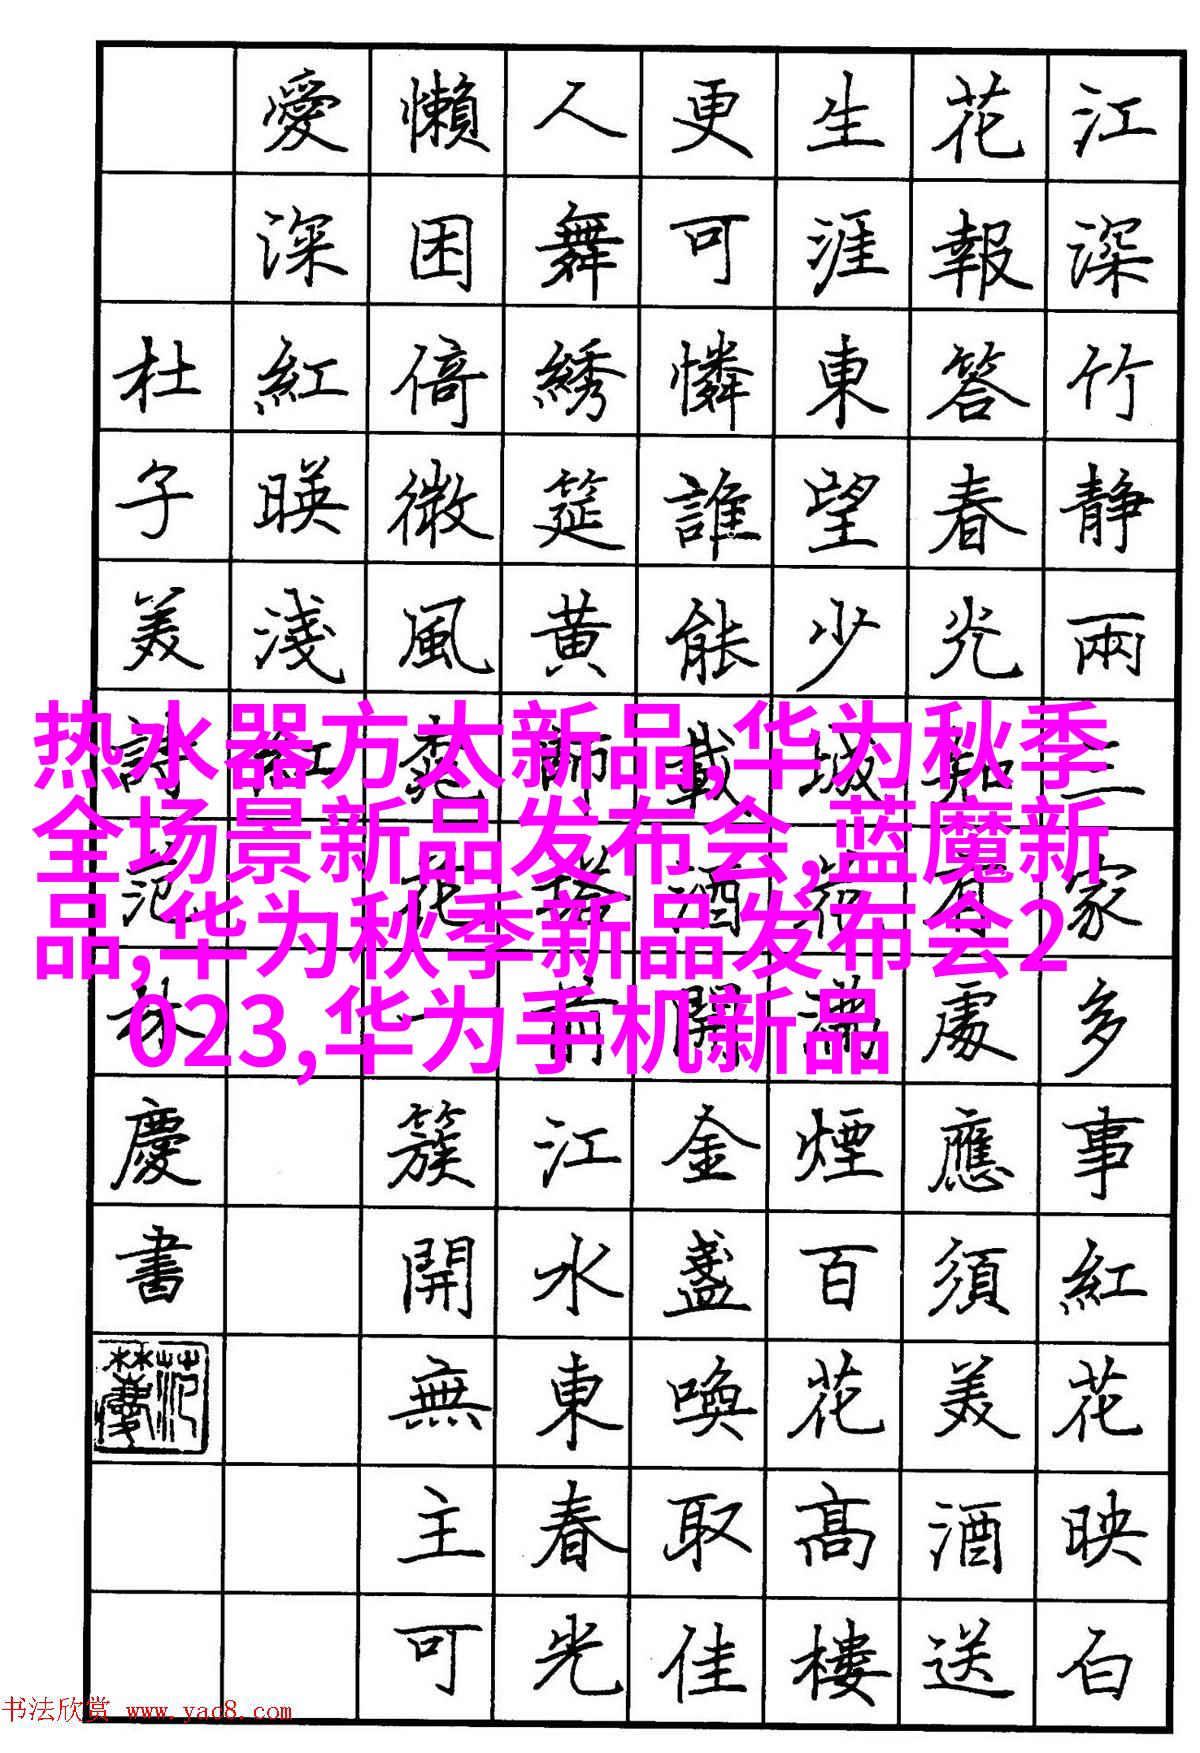 江深竹静兩三家多事紅花映白
花報答春光知有處應須美酒送
生涯東望少城花滿煙百花高樓
更可憐誰能載酒開金盞喚取佳
人舞綉筵黄師塔前江水東春光
懶困倚微風桃花一簇開無主可
愛深紅暎淺紅
杜子美詩范林慶書
热水器方太新品,华为秋季
全场景新品发布会,蓝魔新
品,华为秋季新品发布会2
023,华为手机新品
书法欣赏 www.yac8.com